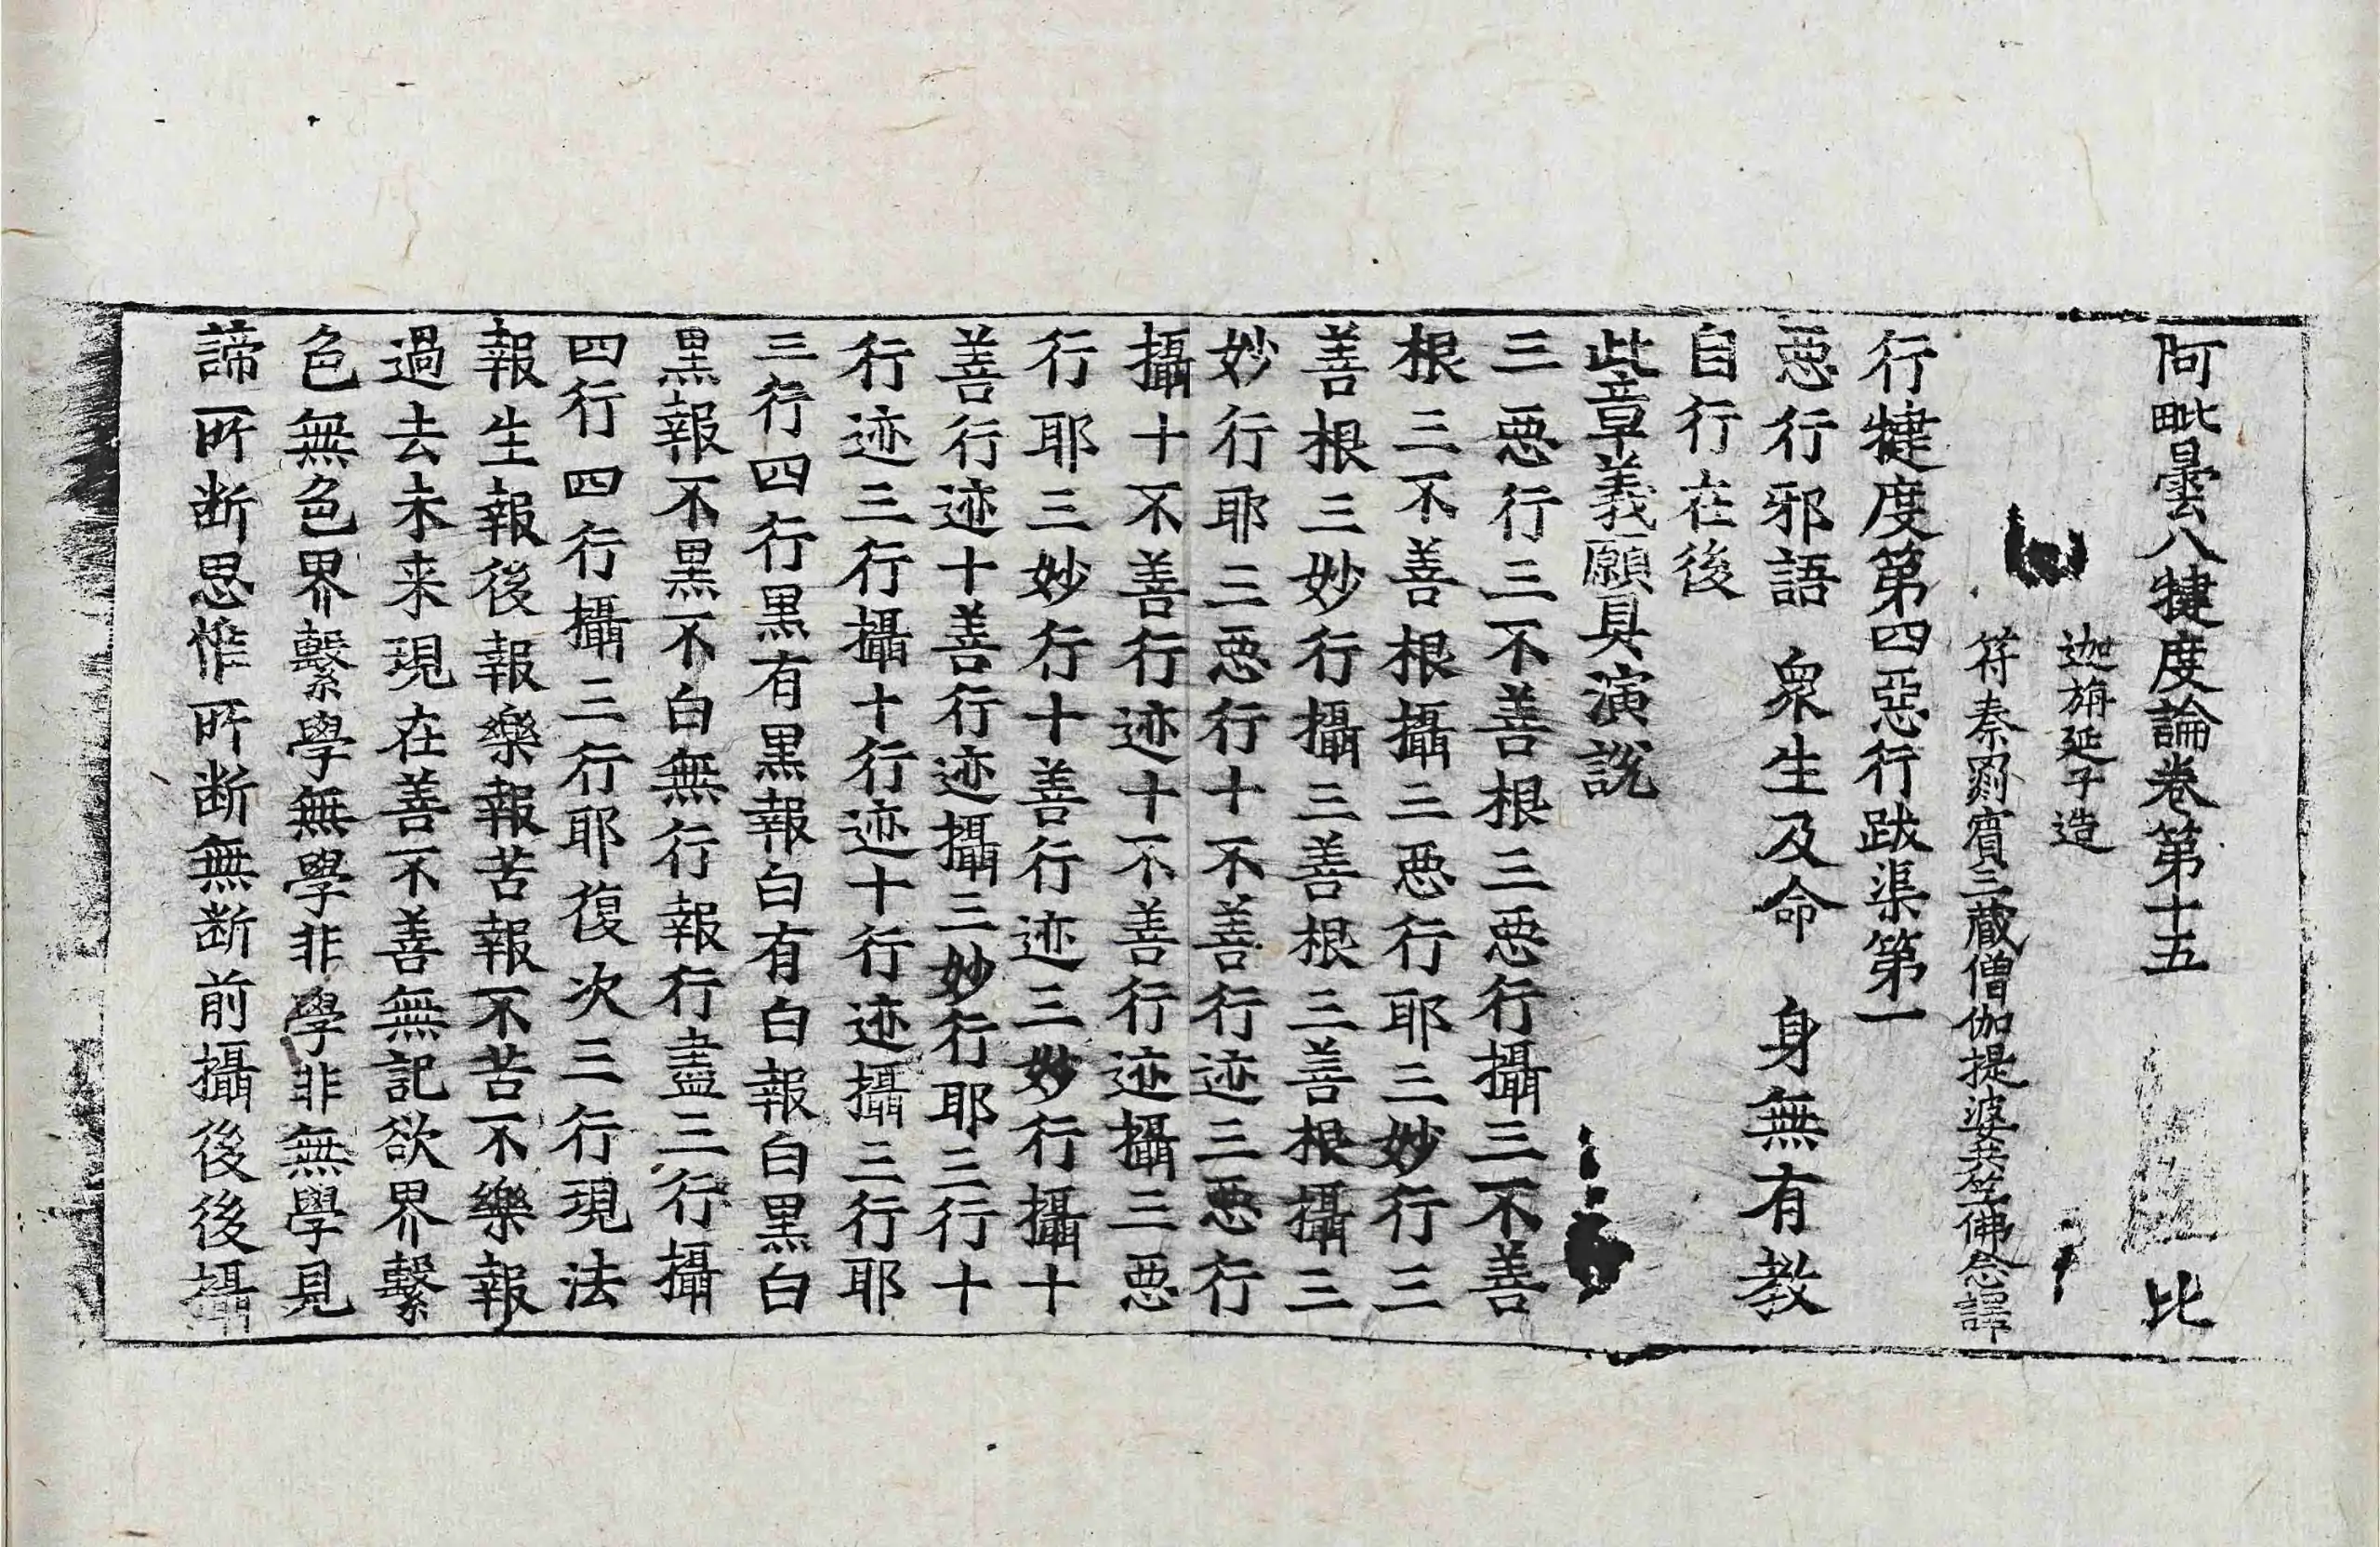 阿毗曇八犍度論卷第十五 比
迦旃延子造
符秦罽賓三藏僧伽提婆共竺佛念譯
行犍度第四惡行跋渠第一
惡行邪語 衆生及命 身無有教
自行在後
此章義願具演說
三惡行三不善根三惡行攝三不善
根三不善根攝三惡行耶三妙行三
善根三妙行攝三善根三善根攝三
妙行耶三惡行十不善行迹三惡行
攝十不善行迹十不善行迹攝三惡
行耶三妙行十善行迹三妙行攝十
善行迹十善行迹攝三妙行耶三行十
行迹三行攝十行迹十行迹攝三行耶
三行四行黑有黑報白有白報白黑白
黑報不黑不白無行報行盡三行攝
四行四行攝三行耶復次三行現法
報生報後報樂報苦報不苦不樂報
過去未来現在善不善無記欲界繫
色無色界繫學無學非學非無學見
諦所断思惟所断無断前攝後後攝